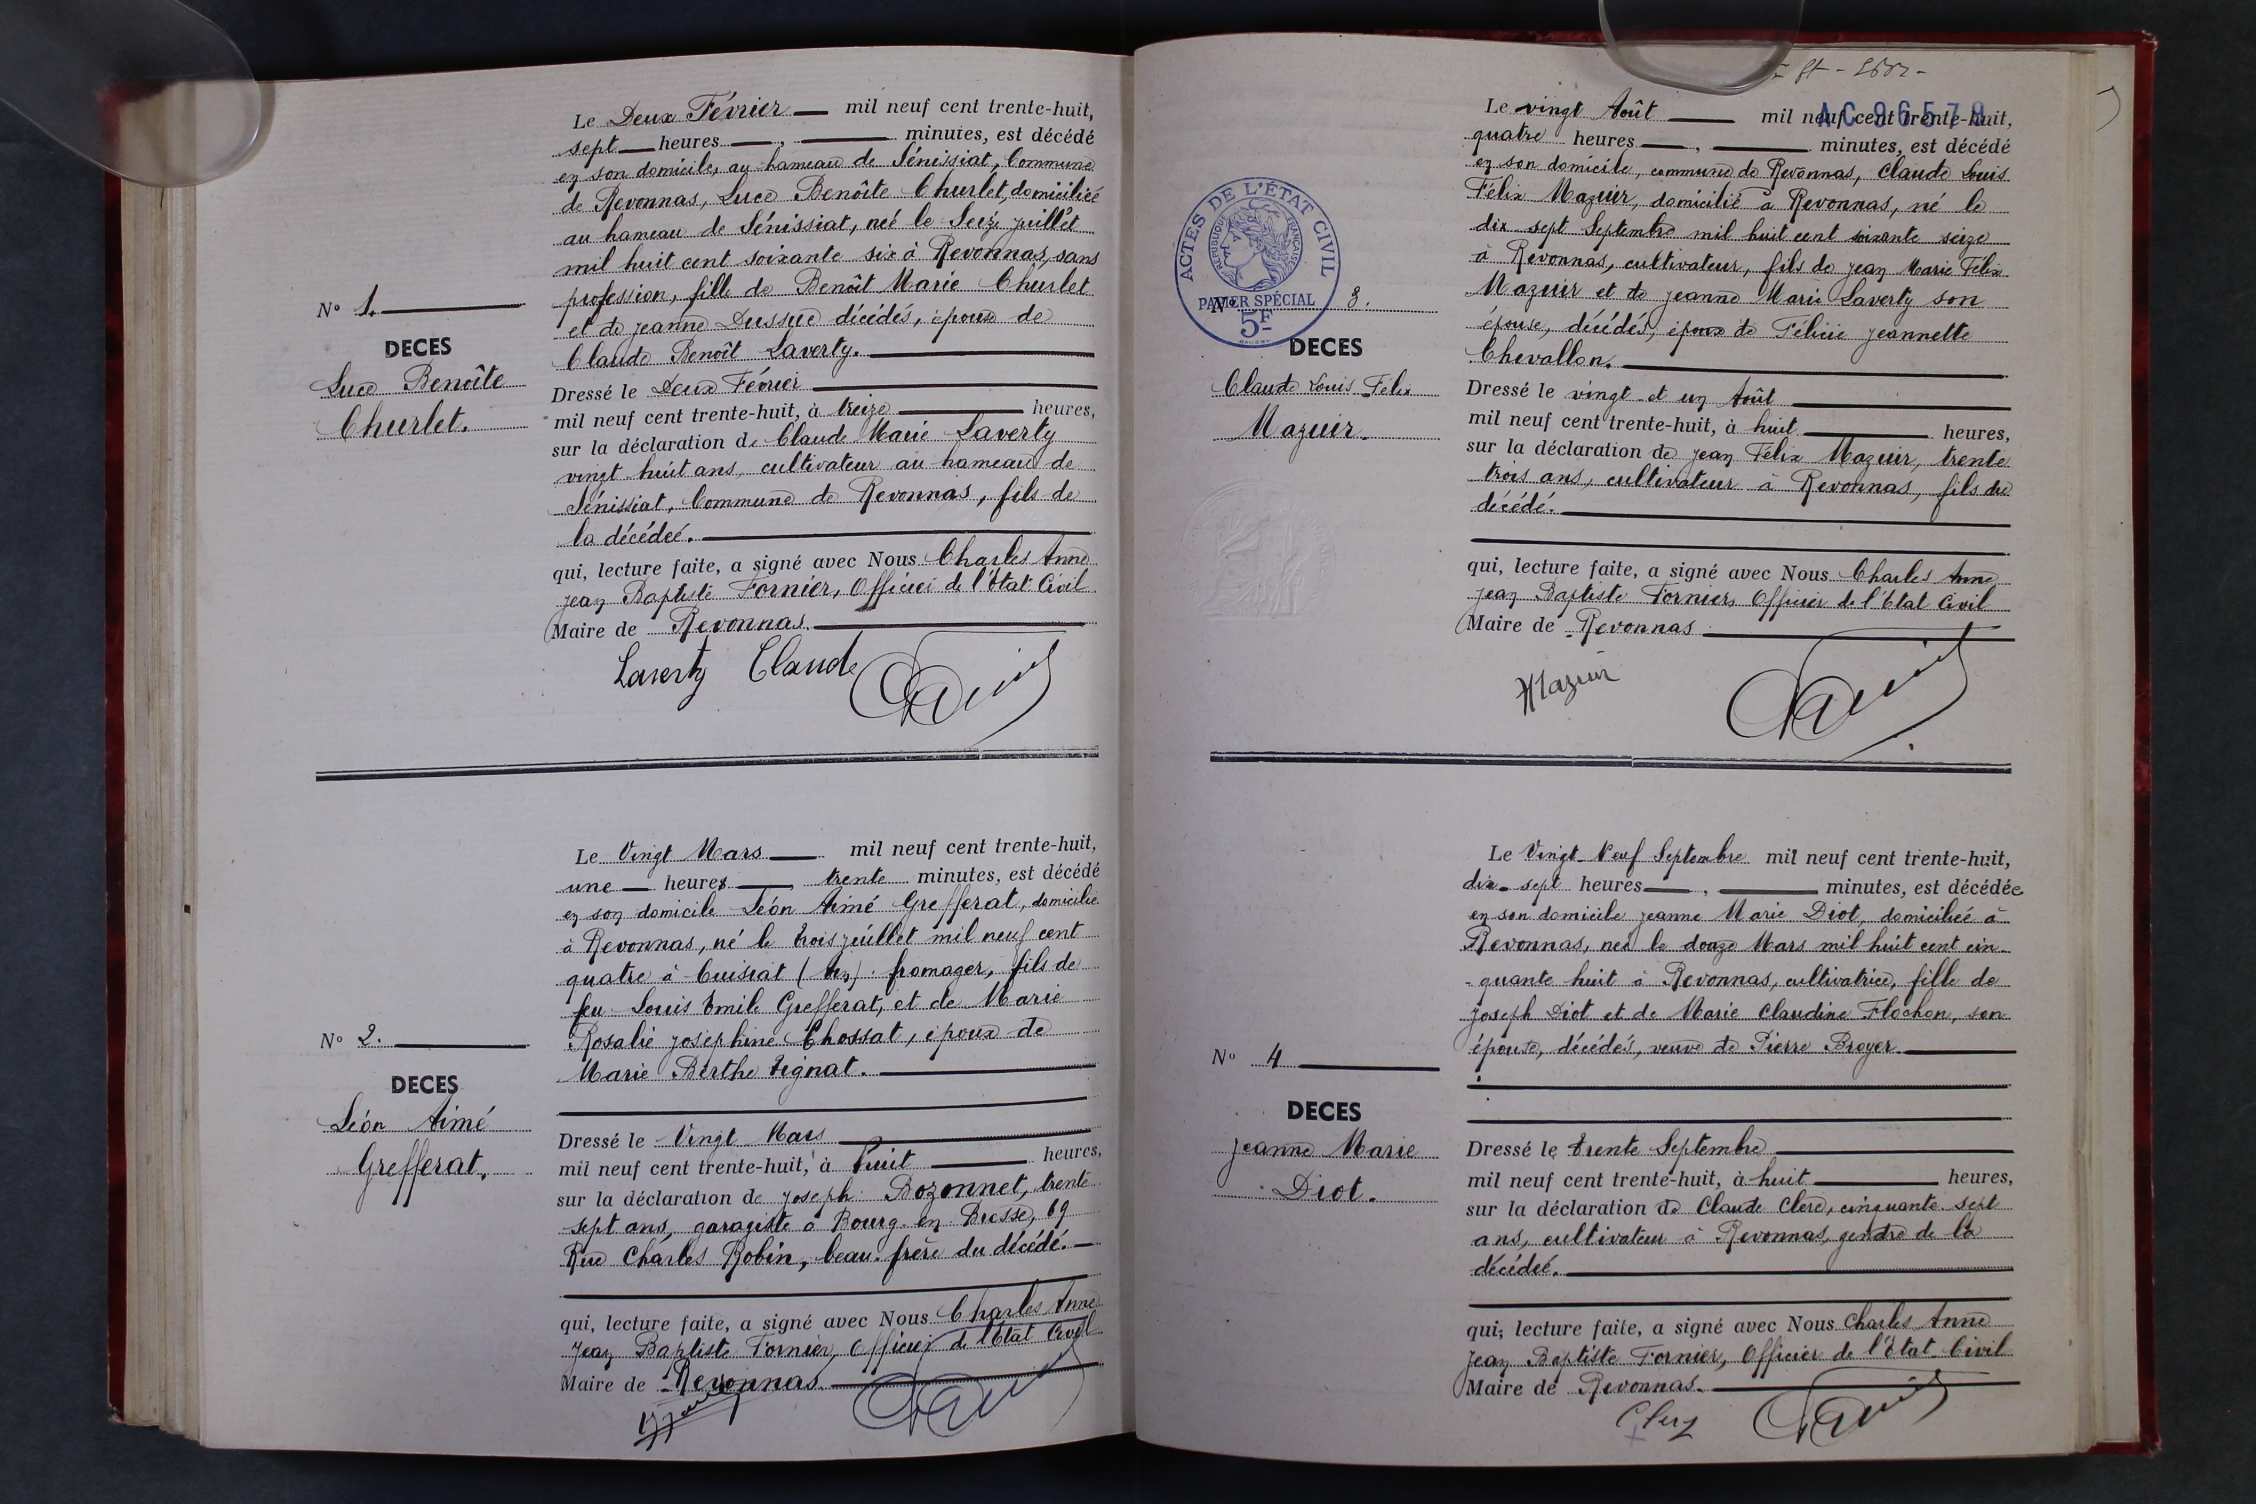 Le Deux Février mil neuf cent trente-huit,
sept heures , minutes, est décédé
en son domicile, au hameau de Sénissiat, Commune
de Revonnas, Luce Benoîte Churlet, domiciliée
au hameau de Sénissiat, née le Seize juillet
mil huit cent soixante six à Revonnas, sans
profession, fille de Benoît Marie Churlet
et de Jeanne Dussuc décédés, épouse de
Claude Benoît Laverty.
N° 1.
DECES
Luce Benoîte
Churlet.
Dressé le Deux Février
mil neuf cent trente-huit, à treize heures,
sur la déclaration de Claude Marie Laverty
vingt-huit ans, cultivateur au hameau de
Sénissiat, Commune de Revonnas, fils de
la décédée.
qui, lecture faite, a signé avec Nous Charles Anne
Jean Baptiste Fornier, Officier de l'Etat Civil
Maire de Revonnas.
Laverty Claude
Le Vingt Mars mil neuf cent trente-huit,
une heures , trente minutes, est décédé
en son domicile Léon Aimé Grefferat, domicilié
à Revonnas, né le trois juillet mil neuf cent
quatre à Cuisiat (Ain). fromager, fils de
feu Louis Emile Grefferat, et de Marie
Rosalie Joséphine Chossat, époux de
Marie Berthe Tignat.
N° 2.
DECES
Léon Aimé
Grefferat.
Dressé le Vingt Mars
mil neuf cent trente-huit, à huit heures,
sur la déclaration de Joseph Bozonnet, trente
sept ans, garagiste à Bourg-en-Bresse, 69
Rue Charles Robin, beau-frère du décédé.
qui, lecture faite, a signé avec Nous Charles Anne
Jean Baptiste Fornier, Officier de l'Etat Civil
Maire de Revonnas.
AC 96579
Le vingt Août mil neuf cent trente-huit,
quatre heures , minutes, est décédé
en son domicile, commune de Revonnas, Claude Louis
Félix Mazuir, domicilié à Revonnas, né le
dix sept Septembre mil huit cent soixante seize
à Revonnas, cultivateur, fils de Jean Marie Félix
Mazuir et de Jeanne Marie Laverty son
épouse, décédés, époux de Félicie Jeannette
Chevallon.
ACTES DE L'ÉTAT CIVIL
RÉPUBLIQUE FRANÇAISE
PAPIER SPÉCIAL
5F
N° 3.
DECES
Claude Louis Felix
Mazuir.
Dressé le vingt et un Août
mil neuf cent trente-huit, à huit heures,
sur la déclaration de Jean Félix Mazuir, trente
trois ans, cultivateur à Revonnas, fils du
décédé.
qui, lecture faite, a signé avec Nous Charles Anne
Jean Baptiste Fornier, Officier de l'Etat Civil
Maire de Revonnas
Mazuir
Le Vingt-Neuf Septembre mil neuf cent trente-huit,
dix-sept heures , minutes, est décédée
en son domicile Jeanne Marie Diot, domiciliée à
Revonnas, née le douze Mars mil huit cent cin-
quante huit à Revonnas, cultivatrice, fille de
Joseph Diot et de Marie Claudine Flochon, son
épouse, décédés, veuve de Pierre Broyer.
N° 4
DECES
Jeanne Marie
Diot.
Dressé le trente Septembre
mil neuf cent trente-huit, à huit heures,
sur la déclaration de Claude Clerc, cinquante sept
ans, cultivateur à Revonnas, gendre de la
décédée.
qui, lecture faite, a signé avec Nous Charles Anne
Jean Baptiste Fornier, Officier de l'Etat Civil
Maire de Revonnas.
Clerc